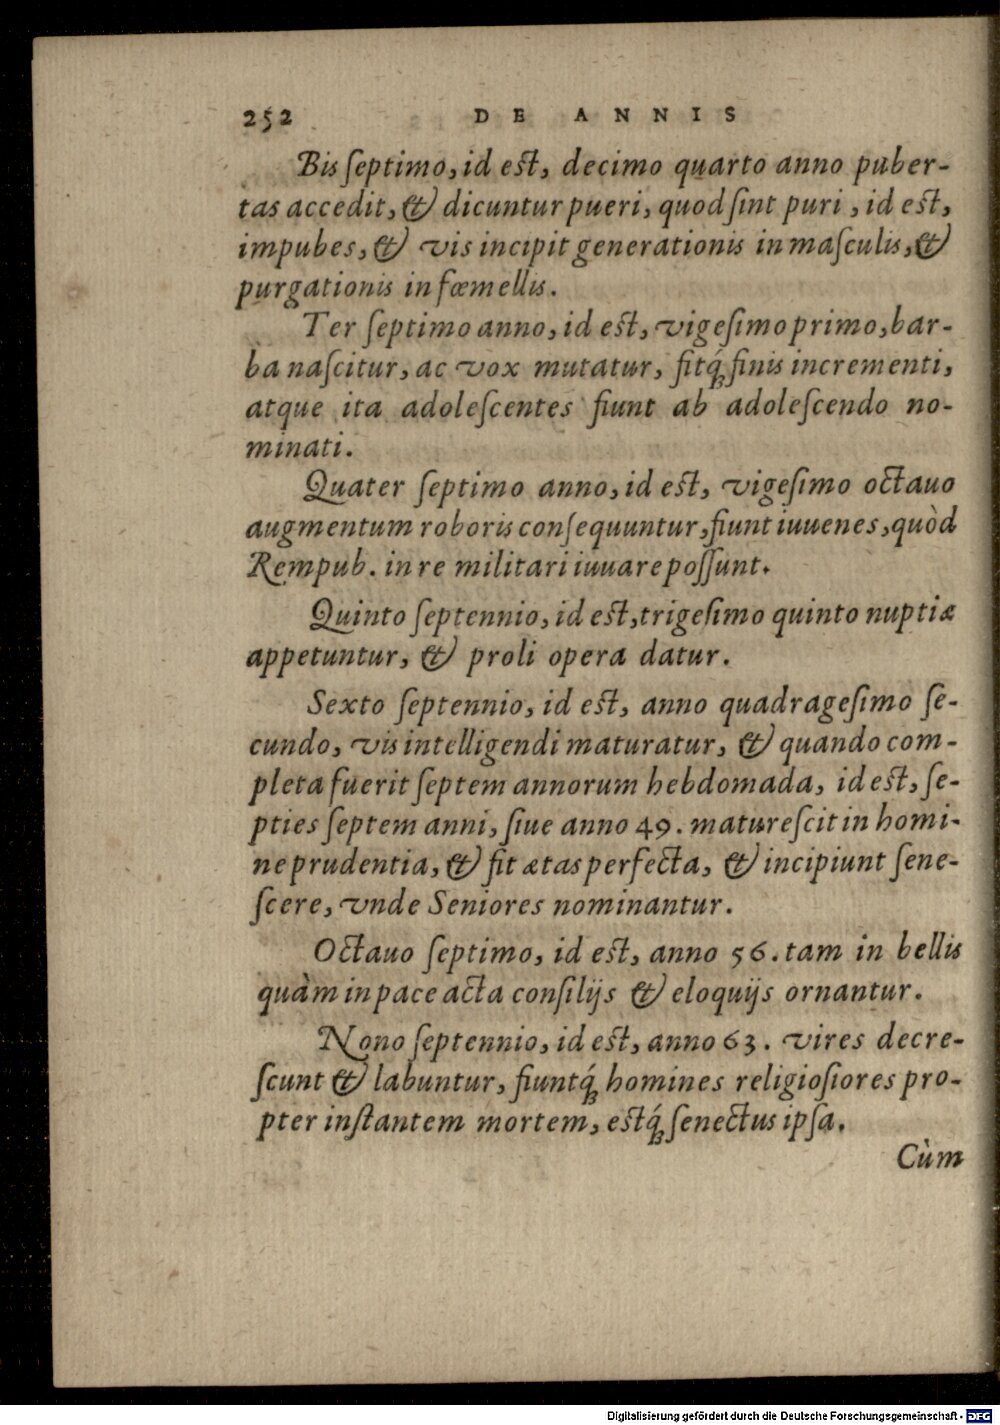 252 DE ANNIS
Bis ſeptimo, id eſt, decimo quarto anno puber-
tas accedit, & dicuntur pueri, quod ſint puri, id eſt,
impubes, & vis incipit generationis in maſculis, &
purgationis in fœmellis.
Ter ſeptimo anno, id eſt, vigeſimo primo, bar-
ba naſcitur, ac vox mutatur, fitq́ue finis incrementi,
atque ita adoleſcentes fiunt ab adoleſcendo no-
minati.
Quater ſeptimo anno, id eſt, vigeſimo octauo
augmentum roboris conſequuntur, fiunt iuuenes, quòd
Rempub. in re militari iuuare poſſunt.
Quinto ſeptennio, id eſt, trigeſimo quinto nuptiæ
appetuntur, & proli opera datur.
Sexto ſeptennio, id eſt, anno quadrageſimo ſe-
cundo, vis intelligendi maturatur, & quando com-
pleta fuerit ſeptem annorum hebdomada, id eſt, ſe-
pties ſeptem anni, ſiue anno 49. matureſcit in homi-
ne prudentia, & fit ætas perfecta, & incipiunt ſene-
ſcere, vnde Seniores nominantur.
Octauo ſeptimo, id eſt, anno 56. tam in bellis
quàm in pace acta conſilijs & eloquijs ornantur.
Nono ſeptennio, id eſt, anno 63. vires decre-
ſcunt & labuntur, fiuntq́ue homines religioſiores pro-
pter inſtantem mortem, eſtq́ue ſenectus ipſa.
Cùm
Digitalisierung gefördert durch die Deutsche Forschungsgemeinschaft - DFG